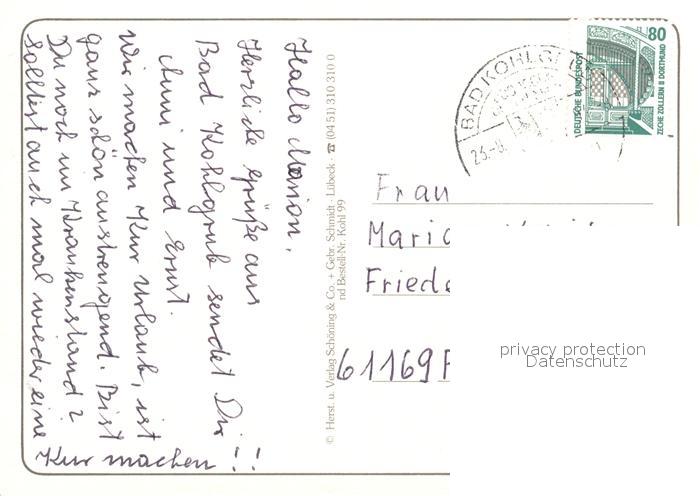 Hallo Marion,
Herzliche Grüße aus
Bad Kohlgrub sendet Dir
Anni und Ernst.
Wir machen Kur urlaub, ist
ganz schön anstrengend. Bist
Du noch im Krankenstand?
solltest auch mal wieder eine
Kur machen!!
© Herst. u. Verlag Schöning & Co. + Gebr. Schmidt · Lübeck · ☎ (04 51) 310 310 0
nd Bestell-Nr. Kohl 99
BAD KOHLGRU
23.-8.
80
DEUTSCHE BUNDESPOST
ZECHE ZOLLERN II DORTMUND
Frau
Mario
Friede
61169 F
privacy protection
Datenschutz